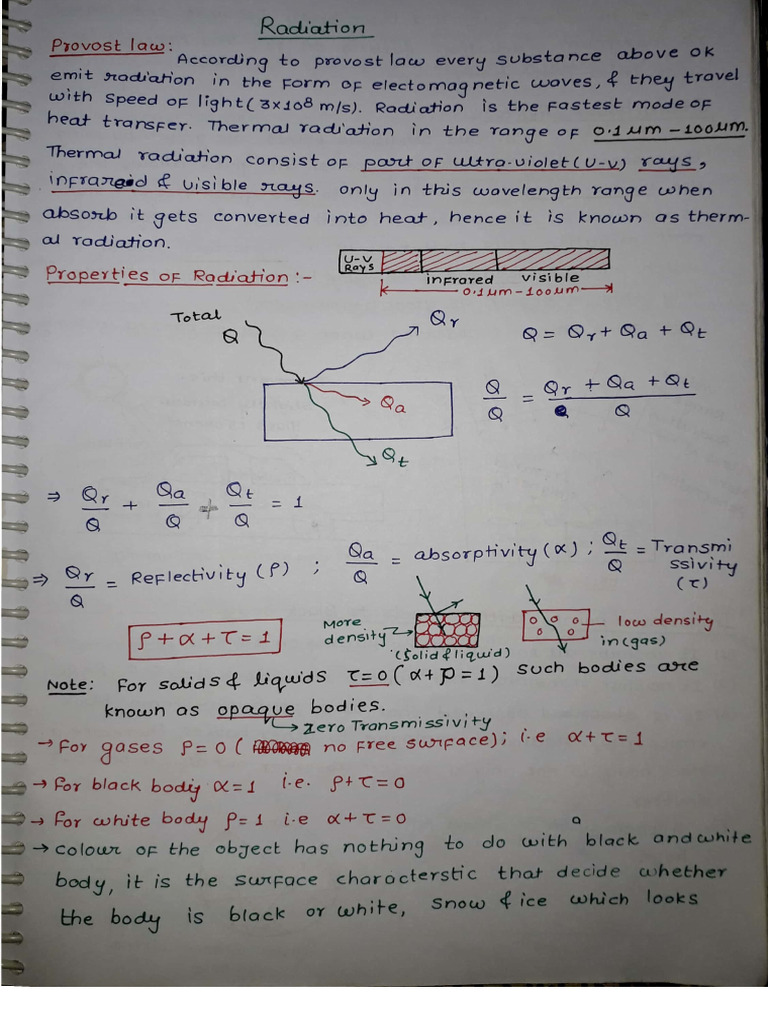 Radiation
Provost law:
According to provost law every substance above 0k
emit radiation in the form of electomagnetic waves, & they travel
with speed of light (3x10⁸ m/s). Radiation is the fastest mode of
heat transfer. Thermal radiation in the range of 0.1μm - 100μm.
Thermal radiation consist of part of ultra-violet (U-V) rays,
infrared & visible rays. only in this wavelength range when
absorb it gets converted into heat, hence it is known as therm-
al radiation.
U-V
Rays
infrared visible
0.1μm - 100μm
Properties of Radiation :-
Total
Q
Qr
Qa
Qt
Q = Qr + Qa + Qt
Q/Q = (Qr + Qa + Qt)/(Q Q)
⇒ Qr/Q + Qa/Q + Qt/Q = 1
⇒ Qr/Q = Reflectivity (ρ) ; Qa/Q = absorptivity (α) ; Qt/Q = Transmi
ssivity
(τ)
ρ + α + τ = 1
More
density
(solid & liquid)
low density
in (gas)
Note: For solids & liquids τ=0 (α+ρ=1) such bodies are
known as opaque bodies.
→ Zero Transmissivity
→ For gases ρ=0 ( no free surface); i.e α+τ=1
→ for black body α=1 i.e. ρ+τ=0
→ For white body ρ=1 i.e α+τ=0
a
→ colour of the object has nothing to do with black and white
body, it is the surface charocterstic that decide whether
the body is black or white, snow & ice which looks